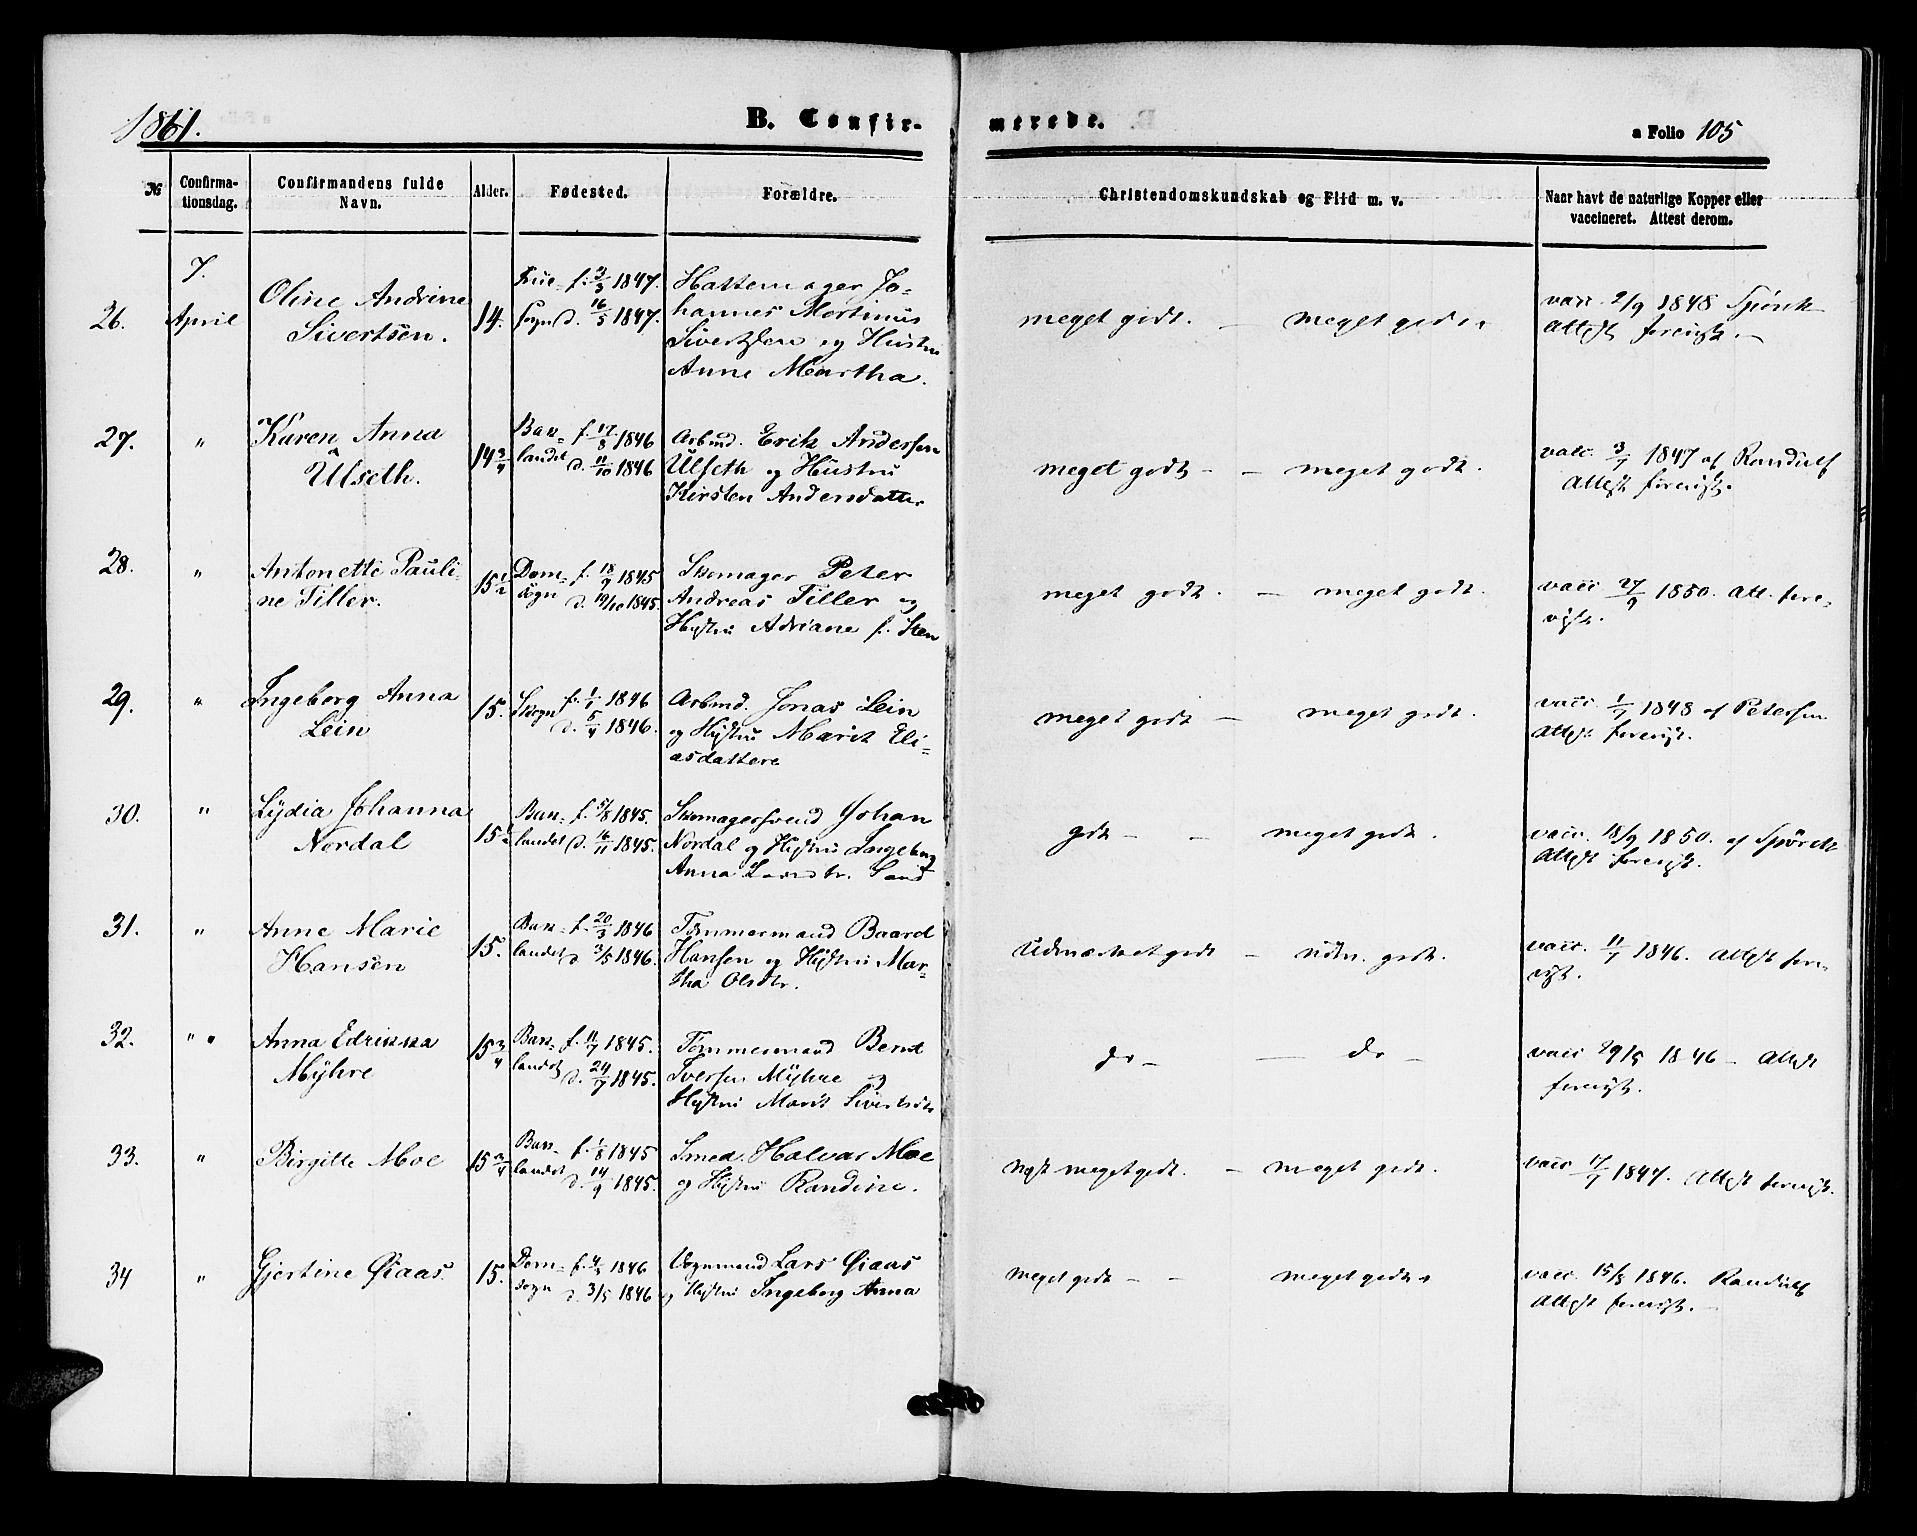 1861.
B. Confir-
merede.
a Folio 105
№
Confirma-
tionsdag.
Confirmandens fulde
Navn.
Alder.
Fødested.
Forældre.
Christendomskundskab og Flid m. v.
Naar havt de naturlige Kopper eller
vaccineret. Attest derom.
26.
7.
April
Oline Andrine
Sivertsen.
14.
Frue= f. 3/3 1847.
sogn d. 16/5 1847.
Hattemager Jo-
hannes Martinus
Sivertsen og Hustru
Anne Martha.
meget godt. – meget godt.
vacc. 2/9 1848 Spörck
Attest forevist. –
27.
"
Karen Anna
Ulseth.
14 3/4
Bak=
landet
f. 17/8 1846
d. 11/10 1846
Arbmd. Erik Andersen
Ulseth og Hustru
Kirsten Andersdatter
meget godt – – meget godt.
vacc. 3/7 1847 af Randulf
Attest forevist.
28.
"
Antonette Pauli-
ne Tiller.
15 1/2
Dom=
sogn
f. 18/9 1845
d. 19/10 1845.
Skomager Peter
Andreas Tiller og
Hustru Adriane f. Sten
meget godt. – meget godt.
vacc 27/9 1850. Att. fore-
vist.
29.
"
Ingeborg Anna
Lein
15.
Skogn
f. 1/1 1846
d. 5/4 1846.
Arbmd. Jonas Lein
og Hustru Marit Eli-
asdatter
meget godt – meget godt.
vacc. 1/7 1848 af Petersen
Attest forevist.
30.
"
Lydia Johanna
Nordal
15 1/2
Bak=
landet
f. 5/8 1845.
d. 16/11 1845.
Skomagersvend Johan
Nordal og Hustru Ingeborg
Anna
godt – – meget godt.
vacc. 18/9 1850. af Spörck
Attest forevist.
31.
"
Anne Marie
Hansen
15.
Bak=
landet
f. 20/3 1846
d 3/5 1846.
Tømmermand Baard
Hansen og Hustru Mar-
tha Olsdtr.
Udmærket godt – udm. godt.
vacc. 11/7 1846. Attest fore-
vist.
32.
" "
Anna Edrikka
Myhre
15 3/4
Bak=
landet
f. 11/7 1845.
d. 24/7 1845.
Tømmermand Bernt
Iversen Myhre og
Hustru Marit Sivertsdtr
do – – do –
vacc 29/5 1846 – Attest
forevist.
33.
"
Birgitte Moe
15 3/4
Bak=
landet
f. 1/8 1845
d. 14/9 1845.
Smed Halvar Moe
og Hustru Randine.
næst meget godt. – meget godt.
vacc 17/7 1847. Attest forevist.
34
"
Gjertine Øiaas.
15.
Dom=
sogn
f. 4/3 1846
d. 3/5 1846
Vognmand Lars Øiaas
og Hustru Ingeborg Anna
meget godt – – meget godt
vacc. 15/8 1846. Randulf
Attest forevist. –